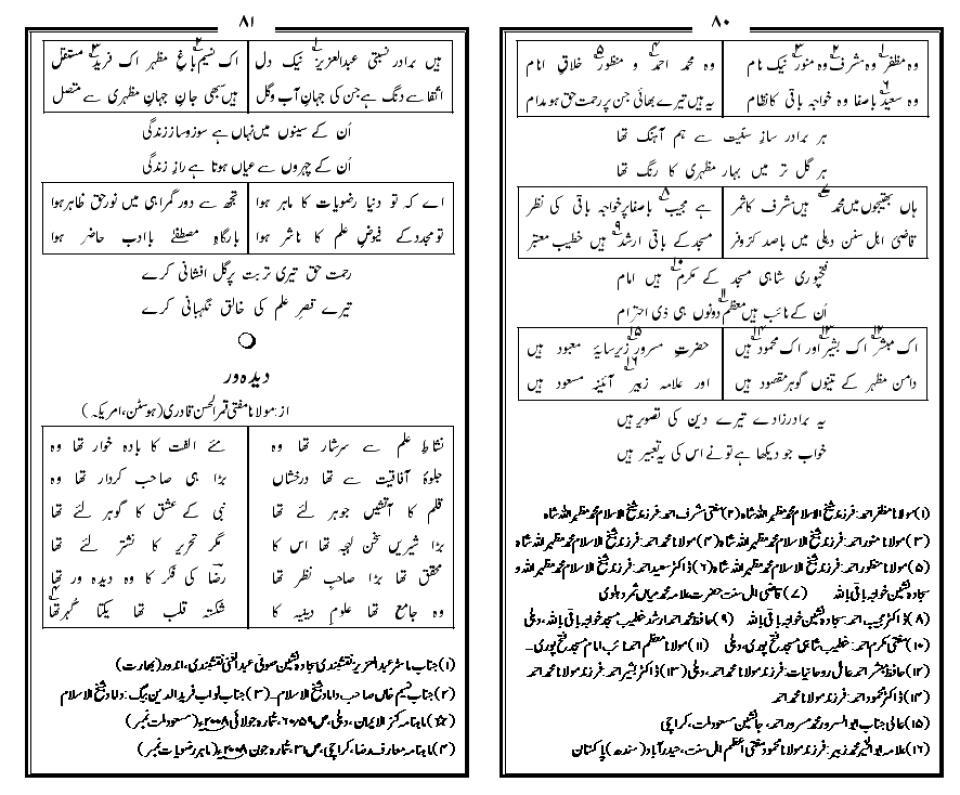 ۸۰
وہ مظفر۱ وہ مشرف۲ وہ منور۳ نیک نام
وہ محمد احمد۴ و منظور۵ خلاق انام
وہ سعید۶ باصفا وہ خواجہ باقی کا نظام
یہ ہیں تیرے بھائی جن پر رحمت حق ہو مدام
ہر برادر ساز سنّیت سے ہم آہنگ تھا
ہر گل تر میں بہار مظہری کا رنگ تھا
ہاں بھتیجوں میں محمد۷ ہیں شرف کا ثمر
ہے مجیب۸ باصفا پر خواجہ باقی کی نظر
قاضیٔ اہل سنن دہلی میں باصد کر و فر
مسجد کے باقی ارشد۹ ہیں خطیب معتبر
فتحپوری شاہی مسجد کے مکرم۱۰ ہیں امام
اُن کے نائب ہیں معظم۱۱ دونوں ہی ذی احترام
اک مبشر۱۲ اک بشیر۱۳ اور اک محمود۱۴ ہیں
حضرتِ مسرور۱۵ زیر سایۂ معبود ہیں
دامن مظہر کے تینوں گوہر مقصود ہیں
اور علامہ زبیر۱۶ آئینۂ مسعود ہیں
یہ برادر زادے تیرے دین کی تصویر ہیں
خواب جو دیکھا ہے تو نے اس کی یہ تعبیر ہیں
(۱) مولانا مظفر احمد: فرزند شیخ الاسلام محمد مظہر اللہ شاہ (۲) مفتی مشرف احمد: فرزند شیخ الاسلام محمد مظہر اللہ شاہ
(۳) مولانا منور احمد: فرزند شیخ الاسلام محمد مظہر اللہ شاہ (۴) مولانا محمد احمد: فرزند شیخ الاسلام محمد مظہر اللہ شاہ
(۵) مولانا منظور احمد: فرزند شیخ الاسلام محمد مظہر اللہ شاہ (۶) ڈاکٹر سعید احمد: فرزند شیخ الاسلام محمد مظہر اللہ و
سجادہ نشین خواجہ باقی باللہ (۷) قاضی اہل سنت حضرت علامہ محمد میاں ثمر دہلوی
(۸) ڈاکٹر مجیب احمد: سجادہ نشین خواجہ باقی باللہ (۹) حافظ محمد احمد ارشد خطیب مسجد خواجہ باقی باللہ، دہلی
(۱۰) مفتی مکرم احمد: خطیب شاہی مسجد فتح پوری، دہلی (۱۱) مولانا معظم احمد: نائب امام مسجد فتح پوری۔
(۱۲) حافظ مبشر احمد عامل روحانیات: فرزند مولانا محمد احمد، دہلی (۱۳) ڈاکٹر بشیر احمد: فرزند مولانا محمد احمد
(۱۴) ڈاکٹر محمود احمد: فرزند مولانا محمد احمد
(۱۵) عالی جناب ابو السرور محمد مسرور احمد، جانشین مسعود ملت، کراچی
(۱۶) علامہ ابو الخیر محمد زبیر: فرزند مولانا محمود مفتی اعظم اہل سنت، حیدرآباد (سندھ) پاکستان
۸۱
ہیں برادر نسبتی عبد العزیز۱ نیک دل
اک نسیم۲ باغ مظہر اک فرید۳ مستقل
اتقا سے دنگ ہے جن کی جہانِ آب و گل
ہیں سبھی جان جہانِ مظہری سے متصل
اُن کے سینوں میں نہاں ہے سوز و ساز زندگی
اُن کے چہروں سے عیاں ہوتا ہے راز زندگی
اے کہ تو دنیا رضویات کا ماہر ہوا
تجھ سے دور گمراہی میں نور حق ظاہر ہوا
تو مجدد کے فیوض علم کا ناشر ہوا
بارگاہِ مصطفےٰ میں باادب حاضر ہوا
رحمت حق تیری تربت پر گل افشانی کرے
تیرے قصر علم کی خالق نگہبانی کرے
دیدہ ور
از: مولانا مفتی قمر الحسن قادری (ہوسٹن، امریکہ)
نشاطِ علم سے سرشار تھا وہ
مئے الفت کا بادہ خوار تھا وہ
جلوۂ آفاقیت سے تھا درخشاں
بڑا ہی صاحب کردار تھا وہ
قلم کا آتشیں جوہر لئے تھا
نبی کے عشق کا گوہر لئے تھا
بڑا شیریں سخن لہجہ تھا اس کا
مگر تحریر کا نشتر لئے تھا
محقق تھا بڑا صاحب نظر تھا
رضا کی فکر کا وہ دیدہ ور تھا
وہ جامع تھا علوم دینیہ کا
شکستہ قلب تھا یکتا گہر تھا
(۱) جناب ماسٹر عبد العزیز نقشبندی سجادہ نشین صوفی عبد الغنی نقشبندی، اندور (بھارت)
(۲) جناب نسیم خاں صاحب داماد شیخ الاسلام۔ (۳) جناب نواب فرید الدین بیگ: داماد شیخ الاسلام
(☆) ماہنامہ کنز الایمان، دہلی، ص ۶۰/۵۹، شمارہ جولائی ۲۰۰۸ء (مسعود ملت نمبر)
(۴) ماہنامہ معارف رضا، کراچی، ص ۳۱، شمارہ جون ۲۰۰۸ء (ماہر رضویات نمبر)